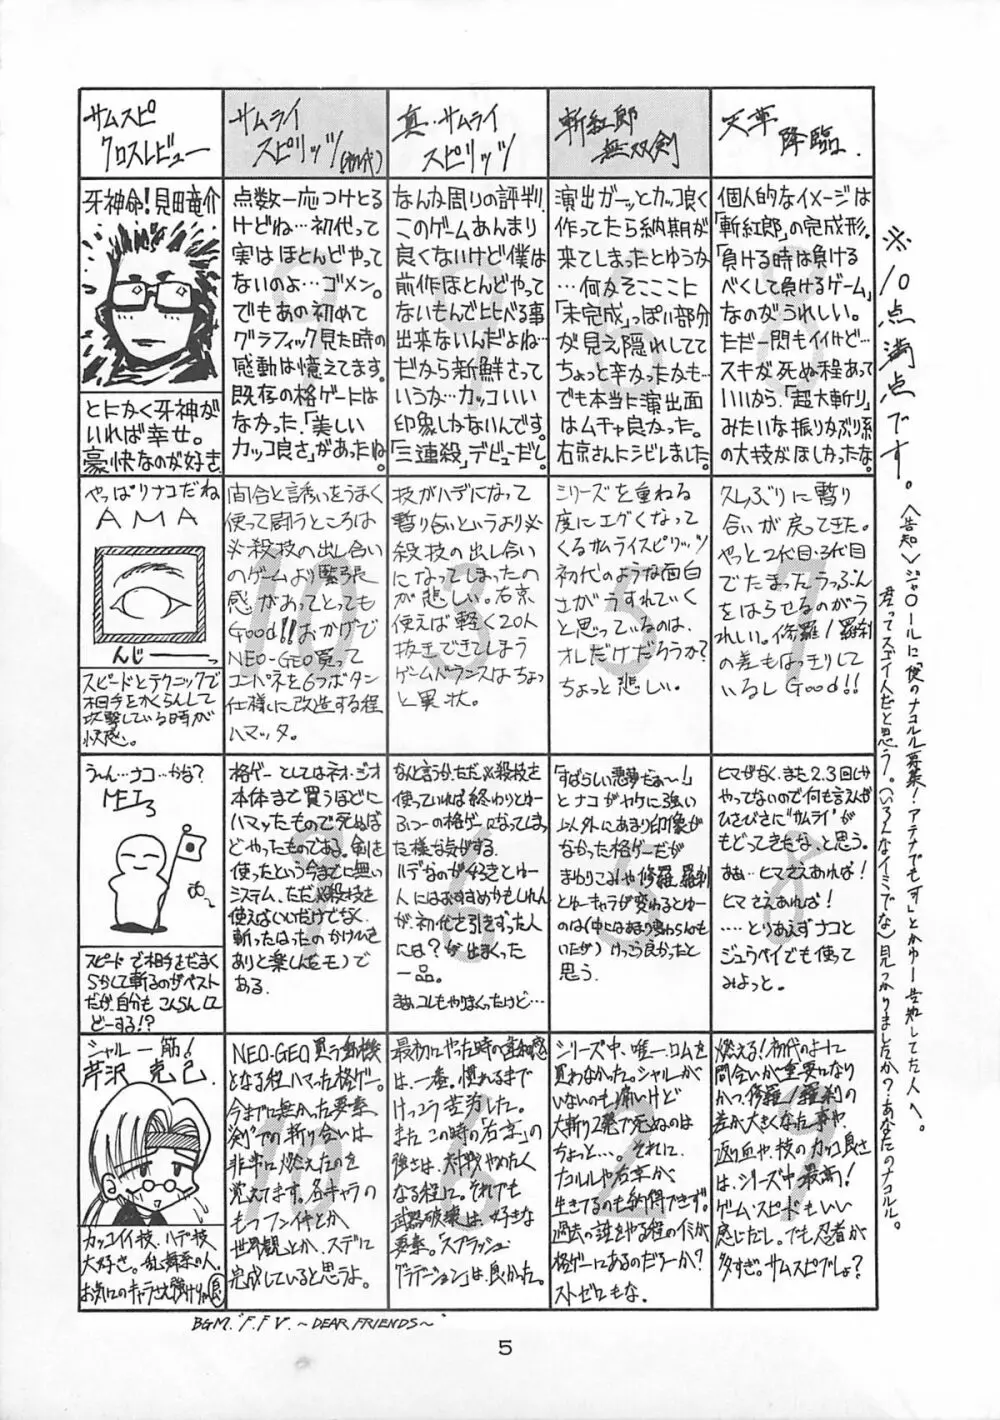 サムスピ
クロスレビュー
サムライ
スピリッツ(初代)
真・サムライ
スピリッツ
斬紅郎
無双剣
天草
降臨.
牙神命!見田竜介
とにかく牙神が
いれば幸せ。
豪快なのが好き
点数一応つけとる
けどね…初代って
実はほとんどやって
ないのよ…ゴメン。
でもあの初めて
グラフィック見た時の
感動は憶えてます。
既存の格ゲーには
なかった「美しい
カッコ良さ」があったね。
なんな周りの評判、
このゲームあんまり
良くないけど僕は
前作ほとんどやって
ないもんで比べる事
出来ないんだよね…
だから新鮮さって
いうか…カッコいい
印象しかないんです。
「三連殺」デビューだし。
9
演出ガーッとカッコ良く
作ってたら納期が
来てしまったとゆうか
…何かそこここに
「未完成」っぽい部分
が見え隠れしてて
ちょっと辛かったかも…
でも本当に演出面
はムチャ良かった。
右京さんにシビレました。
6
個人的なイメージは
「斬紅郎」の完成形。
「負ける時は負ける
べくして負けるゲーム」
なのがうれしい。
ただ一閃もイイけど…
スキが死ぬ程あって
いいから、「超大斬り」
みたいな振りかぶり系
の大技がほしかったな。
8
やっぱりナコだね
AMA
んじーーっ
スピードとテクニックで
相手をかくらんして
攻撃している時が
快感。
間合と誘いをうまく
使って闘うところは
必殺技の出し合い
のゲームより緊張
感があってとっても
Good!!おかげで
NEO-GEO買って
コンパネを6つボタン
仕様に改造する程
ハマッタ。
10
技がハデになって
斬り合いというより必
殺技の出し合い
になってしまったの
が悲しい。右京
使えば軽く20人
抜きできてしまう
ゲームバランスはちょっ
と異状。
3
シリーズを重ねる
度にエグくなって
くるサムライスピリッツ
初代のような面白
さがうすれていく
と思っているのは、
オレだけだろうか?
ちょっと悲しい。
5
久しぶりに斬り
合いが戻ってきた。
やっと2代目、3代目
でたまったうっぷん
をはらせるのがう
れしい。修羅/羅刹
の差もはっきりして
いるしGood!!
7
う〜ん…ナコ…かな?
MEI3
スピードで相手をだまく
らかして斬るのがベスト
だが、自分もこんらん
どーする!?
格ゲーとしてはネオ・ジオ
本体まで買うほどに
ハマッたもので死ぬほ
どやったものである。剣を
使ったという今までに無い
システム、ただ必殺技を
使えばいいだけでなく、
斬ったはったのかけひきを
ありと楽しんだモノで
ある。
なんと言うか、ただ必殺技を
使っていれば終わりとゆー
ふつーの格ゲーになってしまっ
た様な気がする。
ハデなのが好きとゆー
人にはおすすめかもしれん
が、初代を引きずった人
には?が出まくった
一品。
まぁコレもやりまくったけど…
6
「すばらしい悪夢だぁ〜!」
とナコがヤケに強い
以外にあまり印象が
なかった格ゲーだが
まわりこみや修羅、羅刹
とゆーキャラが変わるとゆー
のは(中にはあまり変わらんも
いたが)けっこう良かったと
思う。
5
ヒマがなく、また2.3回しか
やってないので何も言えんが
ひさびさに“サムライ”が
もどってきたな、と思う。
まぁ…ヒマさえあれば!
ヒマさえあれば!
…とりあえずナコと
ジュウベイでも使って
みよっと。
8
シャル一筋!
芹沢 克己
カッコイイ技、ハデな技
大好き。乱舞系の人。
お気にのキャラさえ強けりゃ良
NEO-GEO買う動機
となる程ハマった格ゲー。
今までに無かった要素
“剣”での斬り合いは
非常に燃えたのを
覚えてます。各キャラの
もつフンイキとか
世界観とか、スデに
完成していると思うよ。
10
最初にやった時の違和感
は、一番。慣れるまで
けっこう苦労した。
またこの時の「右京」の
強さは、対戦やめたく
なる程に。それでも
武器破壊は、好きな
要素。「スプラッシュ・
グラデーション」は、良かった。
6
シリーズ中、唯一、ロムを
買わなかった。シャルがい
ないのも痛いけど
大斬り2発で死ぬのは
ちょっと…。それに、
ナコルルや右京が
生きてるのも納得できず。
過去の話をやる程のイミが
格ゲーにあるのだろーか?
ストゼロもな。
2
燃える!初代のように
間合いが重要になり
かつ、修羅/羅刹の
差が大きくなった事や、
返り血や、技のカッコ良さ
は、シリーズ中最高!
ゲーム・スピードもいい
感じだし。でも忍者が
多すぎ。サムスピでしょ?
9
※10点満点です。
〈告知〉ジャ〇ールに「使のナコルル募集!アテナでも可」とかゆー告知してた人へ。
君ってステイ人だと思う。(いろんなイミでな)見つかりましたか?あなたのナコルル。
BGM.“F.F.V.〜DEAR FRIENDS〜”
5